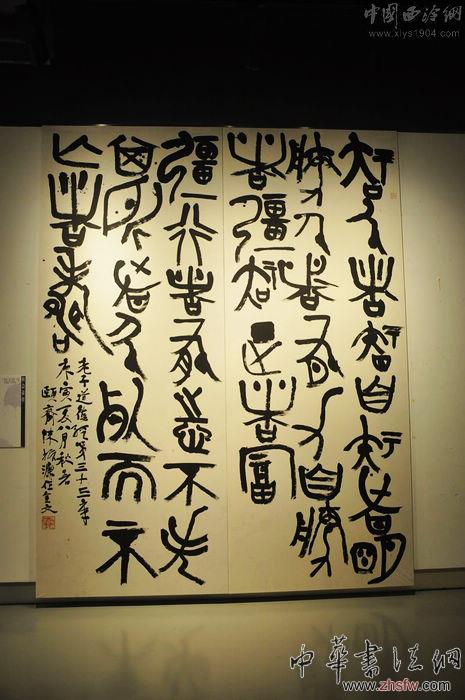 中国西泠網
www.xlys1904.com
知人者智自知者明
勝人者有力自勝
者彊知足者富
彊行者有志不失
其所者久死而不
亡者壽
老子道德經第三十三章
庚寅八月秋
頤齋陳振濂
中華書法網
www.zhsfw.com